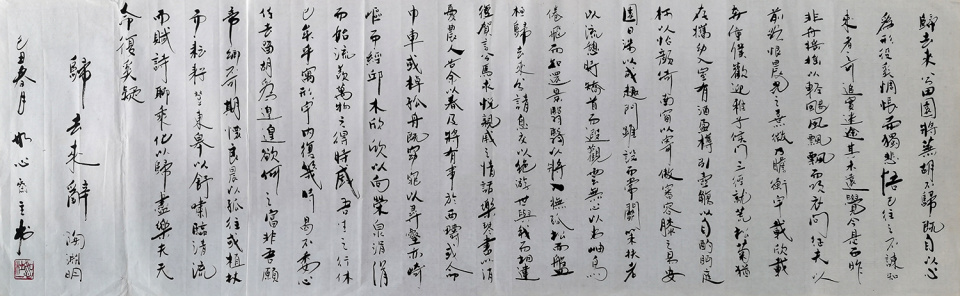 歸去來兮田園將蕪胡不歸既自以心
為形役奚惆悵而獨悲悟已往之不諫知
來者之可追實迷途其未遠覺今是而昨
非舟搖搖以輕颺風飄飄而吹衣問征夫以
前路恨晨光之熹微乃瞻衡宇載欣載
奔僮僕歡迎稚子候門三徑就荒松菊猶
存攜幼入室有酒盈樽引壺觴以自酌眄庭
柯以怡顏倚南窗以寄傲審容膝之易安
園日涉以成趣門雖設而常關策扶老
以流憩時矯首而遐觀雲無心以出岫鳥
倦飛而知還景翳翳以將入撫孤松而盤
桓歸去來兮請息交以絕游世與我而相違
復駕言兮焉求悅親戚之情話樂琴書以消
憂農人告余以春及將有事於西疇或命
巾車或棹孤舟既窈窕以尋壑亦崎
嶇而經邱木欣欣以向榮泉涓涓
而始流羨萬物之得時感吾生之行休
已矣乎寓形宇內復幾時曷不委心
任去留胡為遑遑欲何之富貴非吾願
帝鄉不可期懷良辰以孤往或植杖
而耘耔登東皋以舒嘯臨清流
而賦詩聊乘化以歸盡樂夫天
命復奚疑
歸去來辭 陶淵明
己丑春月如心齋主書